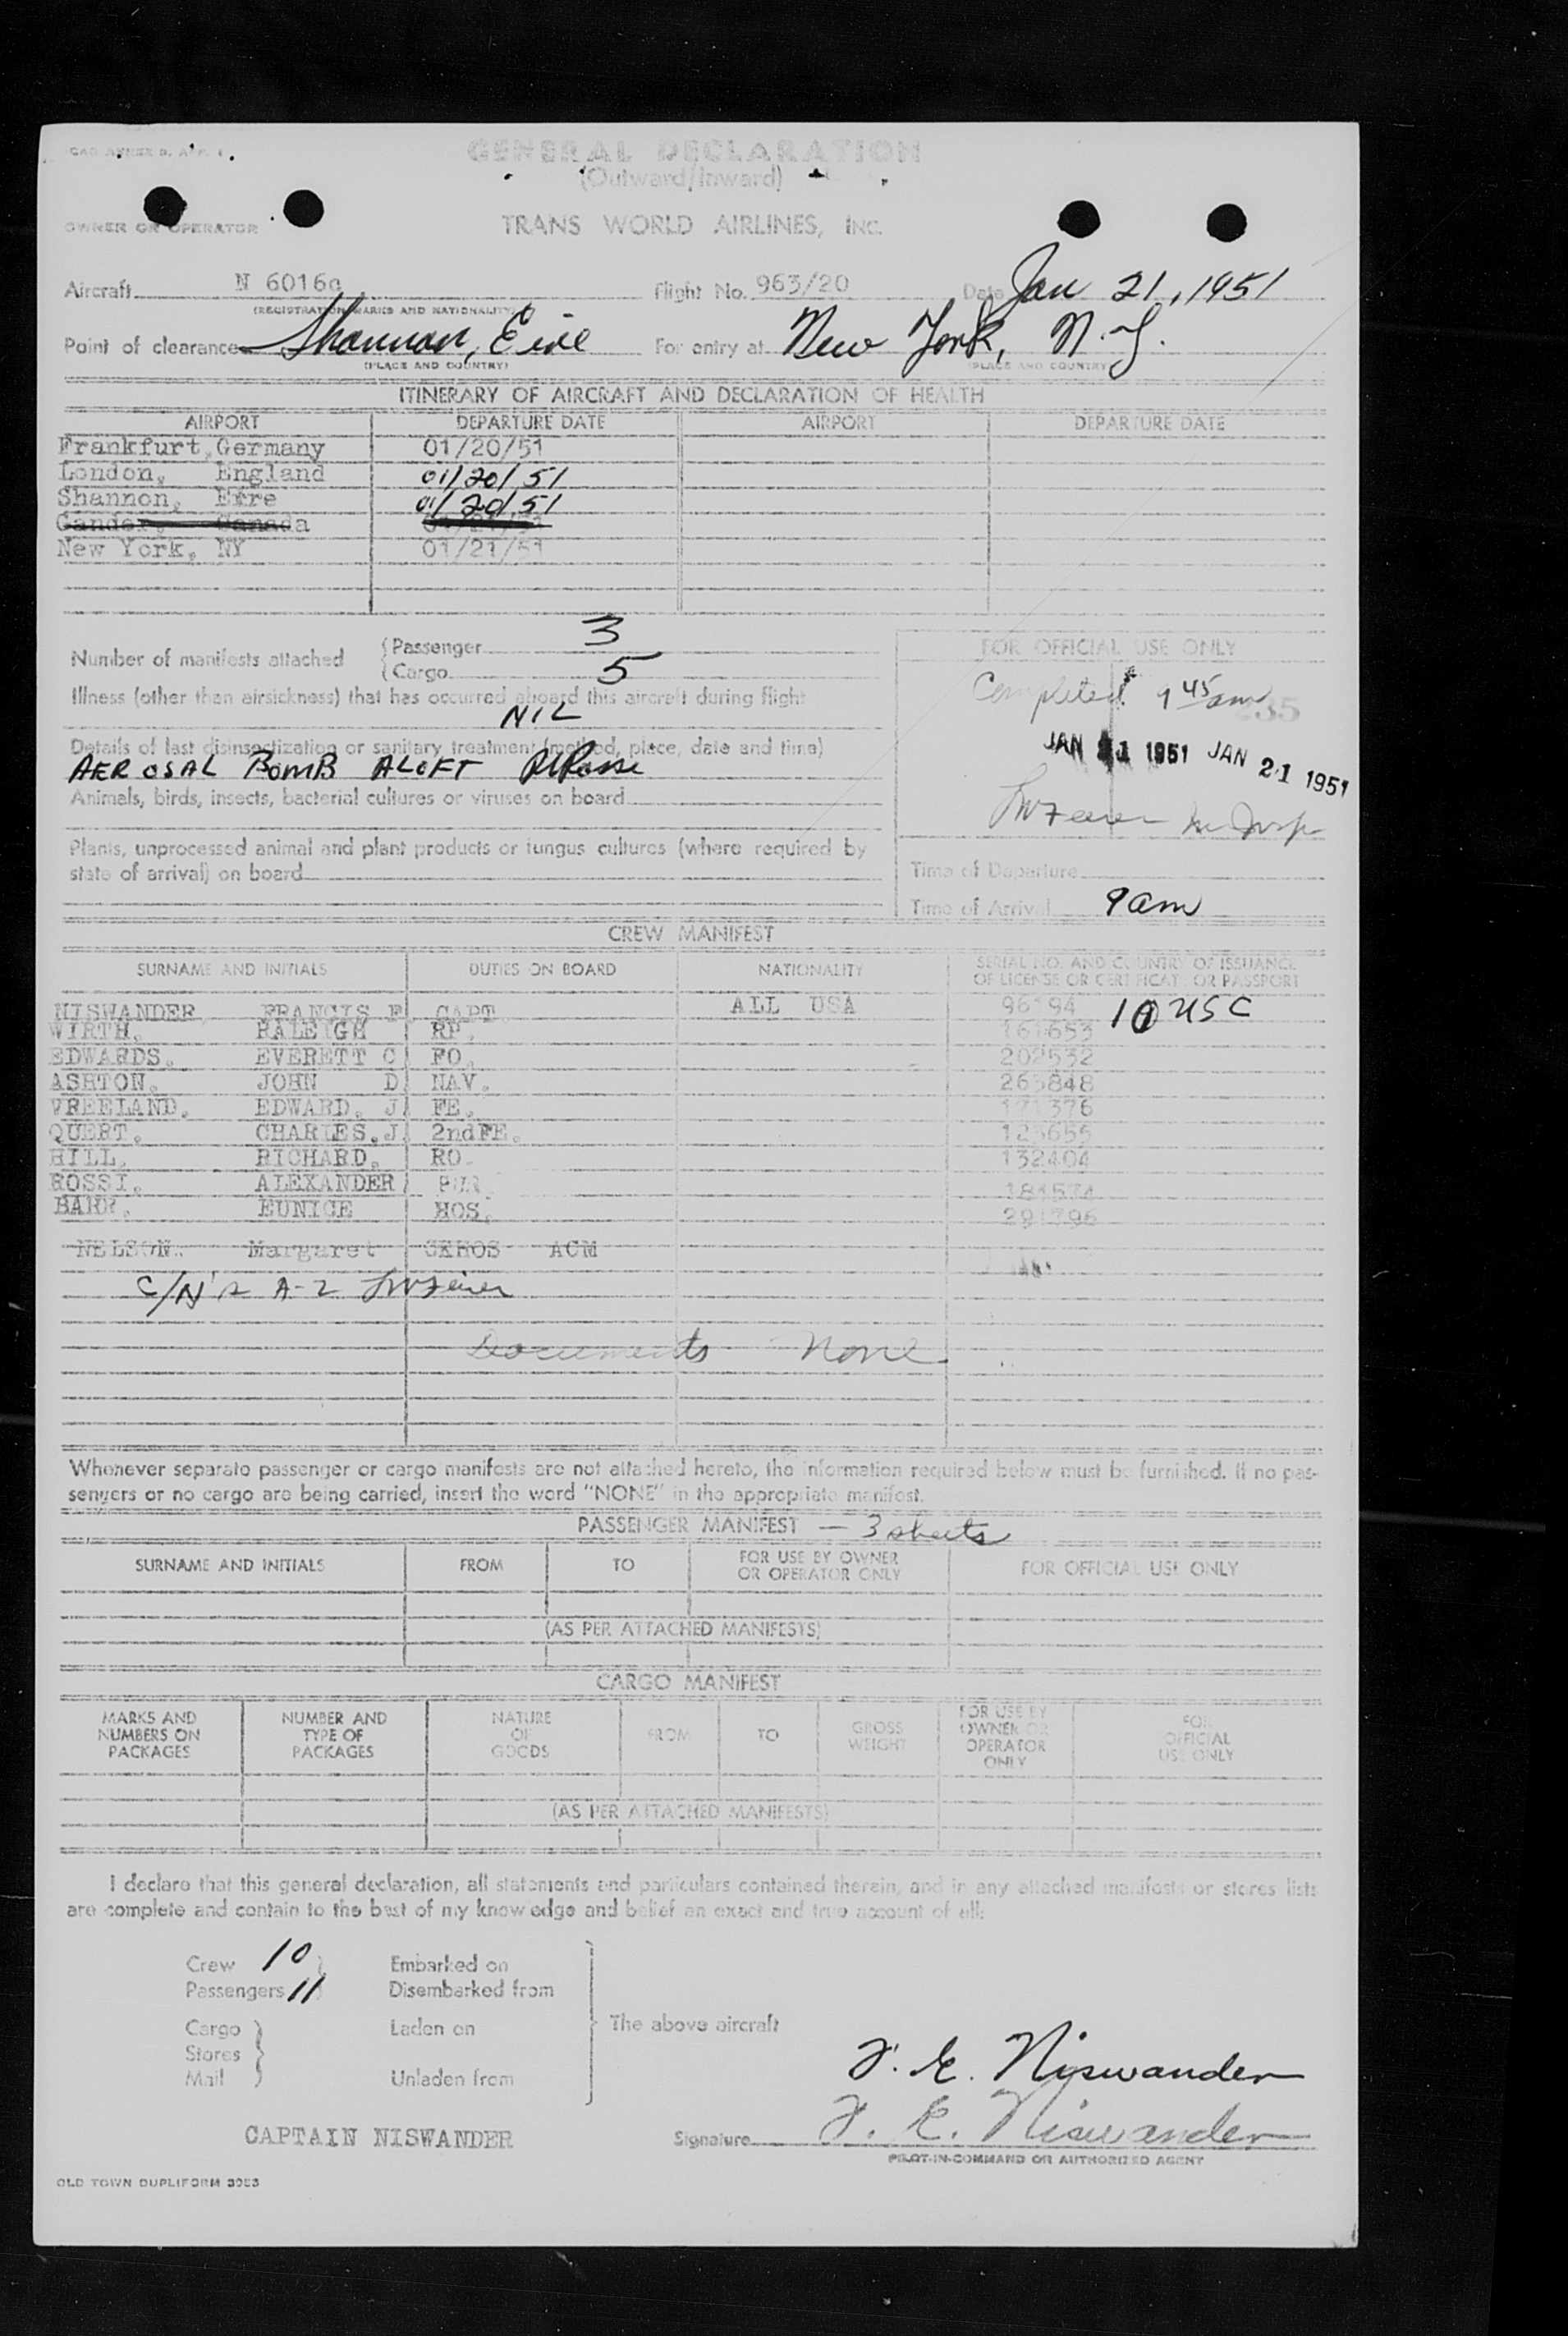 GENERAL DECLARATION
(Outward/Inward)
OWNER OR OPERATOR TRANS WORLD AIRLINES, INC.
Aircraft N 6016 Flight No. 963/20 Date Jan 21, 1951
(REGISTRATION MARKS AND NATIONALITY)
Point of clearance Shannon, Eire For entry at New York, N.Y.
(PLACE AND COUNTRY) (PLACE AND COUNTRY)
ITINERARY OF AIRCRAFT AND DECLARATION OF HEALTH
AIRPORT DEPARTURE DATE AIRPORT DEPARTURE DATE
Frankfurt, Germany 01/20/51
London, England 01/20/51
Shannon, Eire 01/20/51
Gander, Canada
New York, NY 01/21/51
Number of manifests attached (Passenger 3
(Cargo 5
FOR OFFICIAL USE ONLY
Completed 9 45 am
Illness (other than airsickness) that has occurred aboard this aircraft during flight
NIL
JAN 21 1951 JAN 21 1951
Details of last disinsectization or sanitary treatment (method, place, date and time)
AEROSAL BOMB ALOFT
Animals, birds, insects, bacterial cultures or viruses on board
Plants, unprocessed animal and plant products or fungus cultures (where required by
state of arrival) on board
Time of Departure
Time of Arrival 9 am
CREW MANIFEST
SURNAME AND INITIALS DUTIES ON BOARD NATIONALITY SERIAL NO. AND COUNTRY OF ISSUANCE
OF LICENSE OR CERTIFICATE OR PASSPORT
NISWANDER FRANCIS E CAPT. ALL USA 10 USC
WIRTH, RALEIGH RP.
EDWARDS. EVERETT C FO. 202532
ASHTON, JOHN D. NAV. 265848
VREELAND, EDWARD, J FE.
QUERT, CHARLES.J. 2ndFE.
HILL, RICHARD, RO. 132404
ROSSI, ALEXANDER PUR
BARR, EUNICE HOS.
NELSON. Margaret ACM
C/N's A-2
Documents None
Whenever separate passenger or cargo manifests are not attached hereto, the information required below must be furnished. If no pas-
sengers or no cargo are being carried, insert the word "NONE" in the appropriate manifest.
PASSENGER MANIFEST — 3 sheets
SURNAME AND INITIALS FROM TO FOR USE BY OWNER OR OPERATOR ONLY FOR OFFICIAL USE ONLY
(AS PER ATTACHED MANIFESTS)
CARGO MANIFEST
MARKS AND NUMBERS ON PACKAGES NUMBER AND TYPE OF PACKAGES NATURE OF GOODS FROM TO GROSS WEIGHT FOR USE BY OWNER OR OPERATOR ONLY FOR OFFICIAL USE ONLY
(AS PER ATTACHED MANIFESTS)
I declare that this general declaration, all statements and particulars contained therein, and in any attached manifests or stores lists
are complete and contain to the best of my knowledge and belief an exact and true account of all:
Crew 10 Embarked on
Passengers 11 Disembarked from
Cargo Laden on The above aircraft
Stores
Mail Unladen from
F. E. Niswander
CAPTAIN NISWANDER Signature F. E. Niswander
PILOT-IN-COMMAND OR AUTHORIZED AGENT
OLD TOWN DUPLIFORM 3053